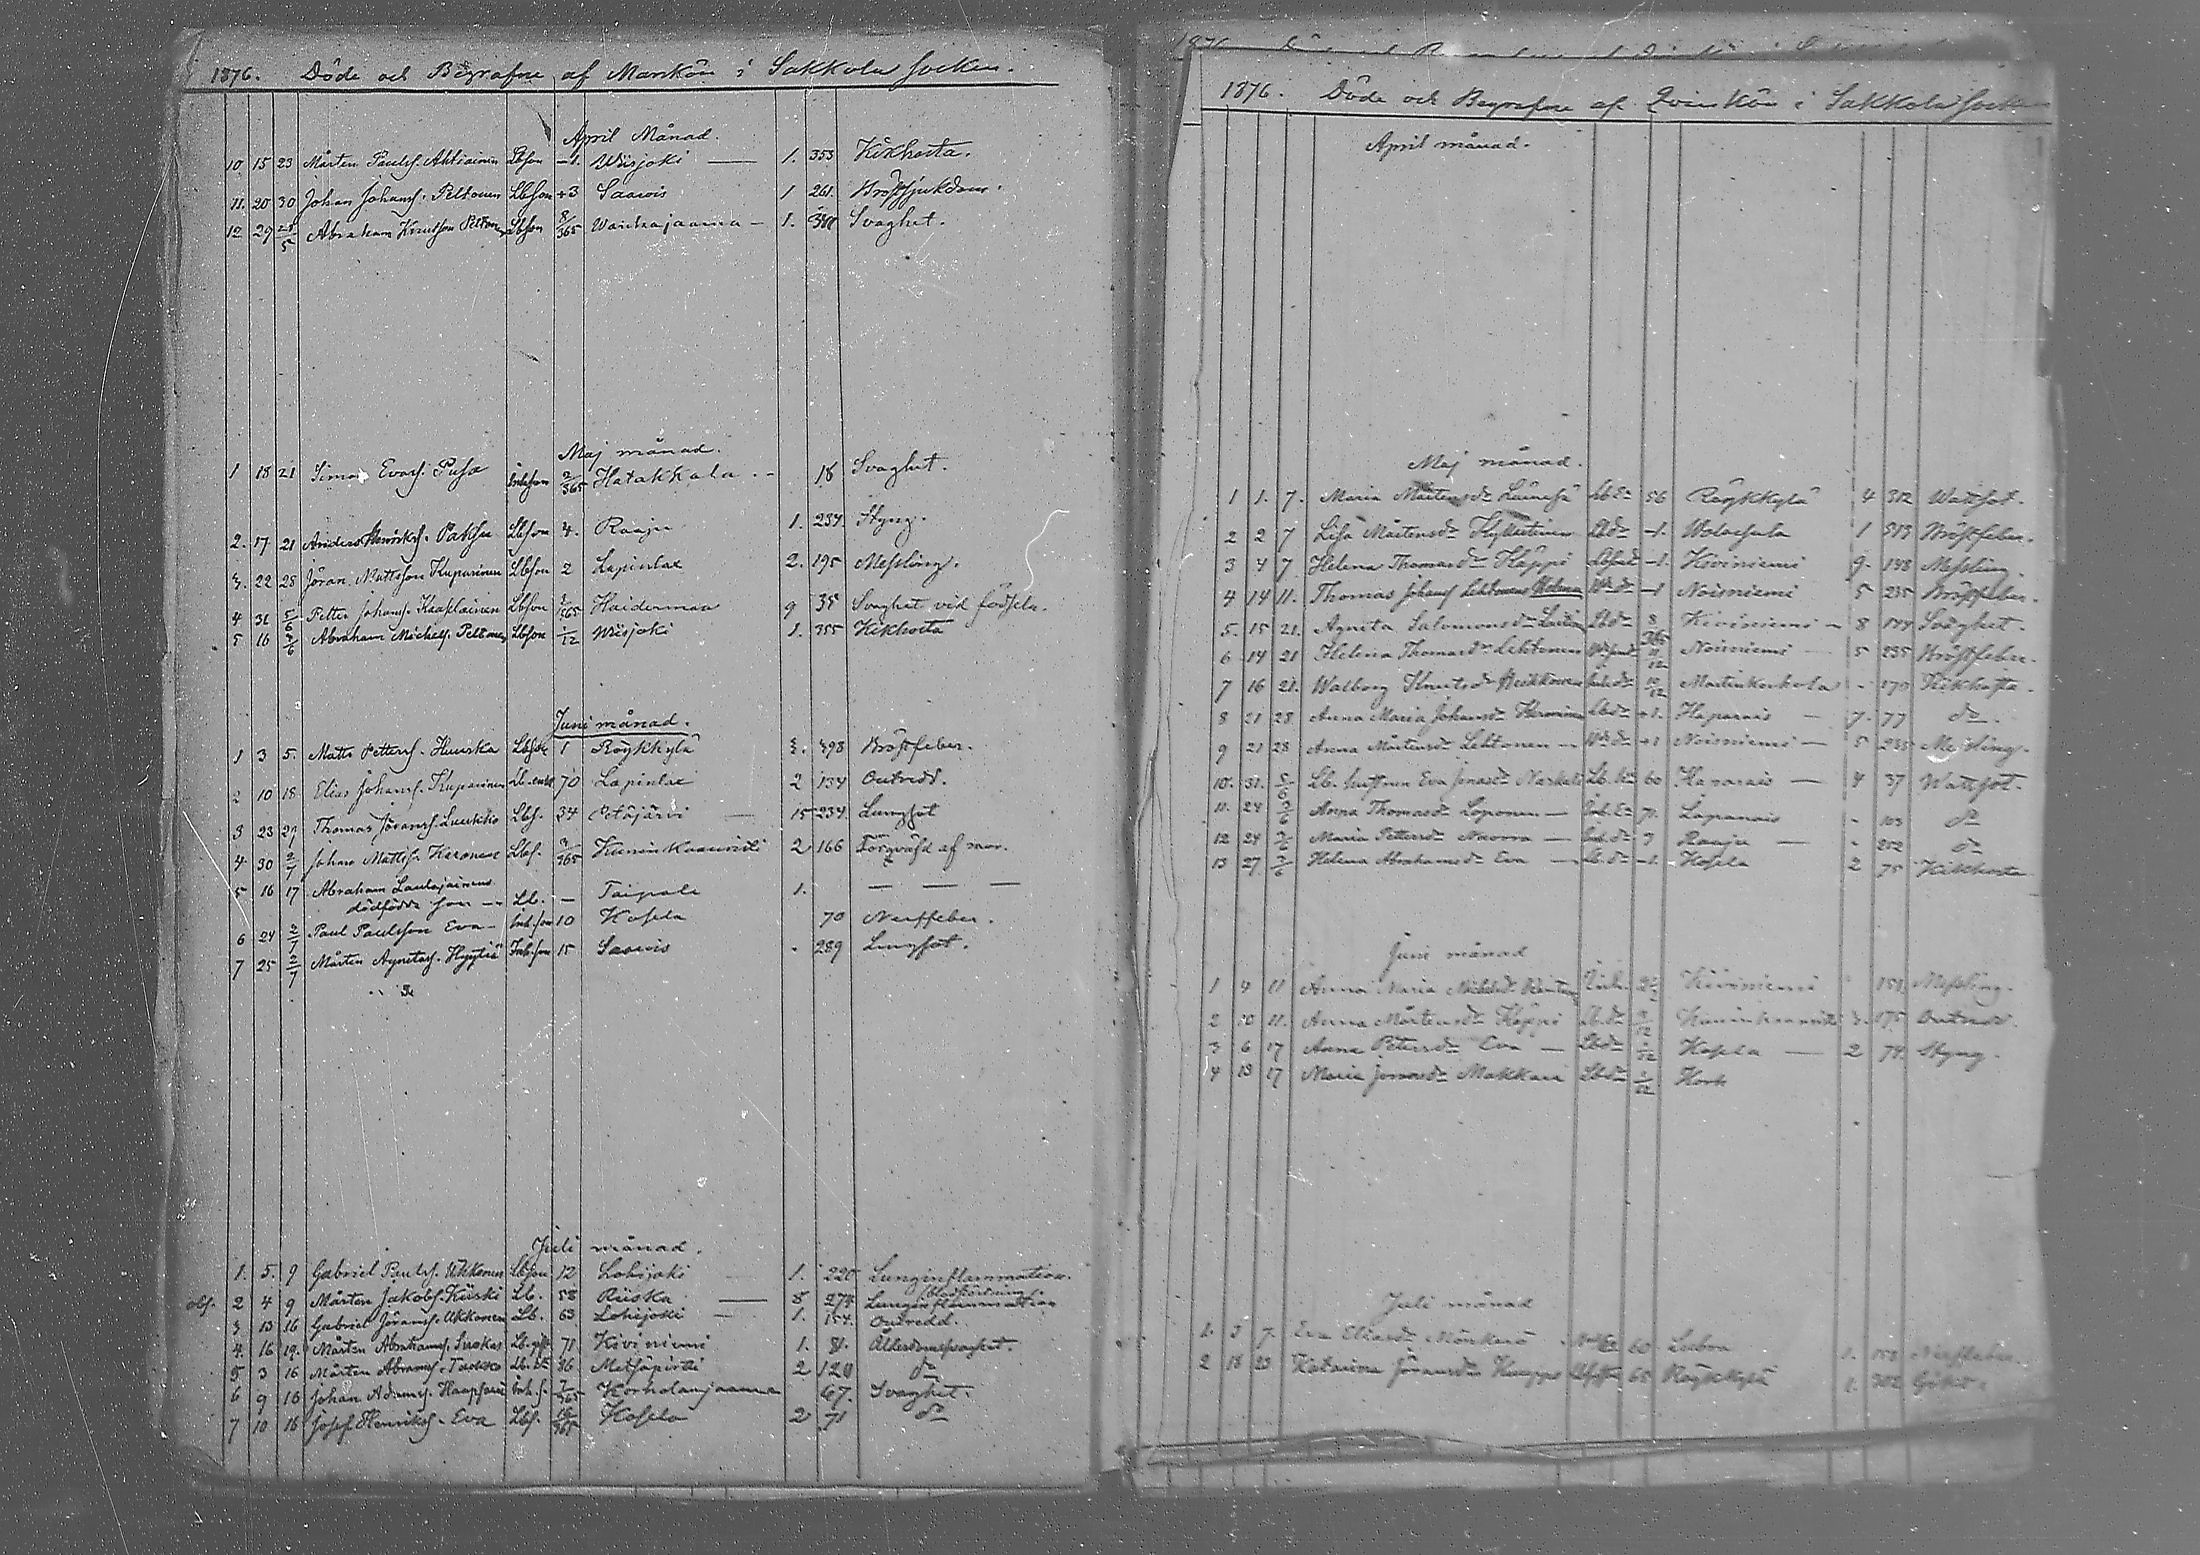 1876. Döde och Begrafne af Mankön i Sakkola Socken.
April Månad.
10. 15 23 Mårten Paulss. Ahtiainen Lbson -1. Wiisjoki — 1. 353 Kikhosta.
11. 20 30 Johan Johanss. Peltonen Lbson +3 Saarois 1 261 Bröstsjukdom.
12 29 5 Abraham Knutsson Peltonen Lbson 8/365 — 1. Svaghet.
Maj månad.
1 18 21 Simon Evass. Pusa Inhson 2/365 Hatakkala -- 18 Svaghet.
2. 17 21 Anders Henrikss. Paksu Lbson 4. Raaju 1. 234. Styng.
3. 22 28 Jöran Mattsson Kuparinen Lbson 2 Lapinlax 2. 195 Messling.
4 31 5/6 Petter Johanss. Kaaplainen Lbson /365 Haidermaa 9 35 Svaghet vid födseln.
5 16 /6 Abraham Michelss. Peltonen Lbson /12 Wiisjoki 1. 355 Kikhosta
Juni månad.
1 3 5. Matts Petterss. Huuska Lbson 1 Röykkylä 3. 398 Bröstfeber.
2 10 18 Elias Johanss. Kuparinen Lb. enkl 70 Lapinlax 2 134 Outredd.
3 23 29 Thomas Jöranss. Luukko Lbs. 34 Petäjärvi — 15 234 Lungsot
4. 30 2/7 Johan Mattss. Karonen Lbs. /365 Kuninkaanristi 2 166 Förqväfd af mor.
5 16 17 Abraham Laulajainens
dödfödde son -- Lb. — Taipale 1. — — —
6 24 2/7 Paul Paulsson Eva - Inh.son 10 Kosela 70 Nerffeber.
7 25 2/7 Mårten Agnetas. Hyytiä Inh.son 15 Saarois - 289 Lungsot.
Juli månad.
1. 5. 9 Gabriel Paulss. Ukkonen Lbson 12 Lohijoki 1. 220 Lunginflammation.
obs. 2 4 9 Mårten Jakobs. Kiiski Lb. 58 Riiska — 8 274 Lunginflammation
3 13 16 Gabriel Jöranss. Ukkonen Lb. 63 Lohijoki — 1. 154. Outredd.
4. 16 19. Mårten Abrahamss. Lb. 71 Kiviniemi 1. 81. Ålderdomssvaghet.
5 3 16 Mårten Abramss. 76 Metsäpirtti 2 120 do
6 9 16 Johan Adamss. Haapsaari Inh.s. 7/365 Korholanjaama 67. Svaghet.
7 10 16 Josef Henrikss. Eva Lbs. /365 Kosela 2 71 do
1876. Döde och Begrafne af Qvinkön i Sakkola Socken
April månad.
Maj månad.
1 1. 7. Maria Mårtensdr 56 Röykkylä 4 302 Wattsot.
2 2 7 Lisa Mårtensdr Lbdr -1. 1 Bröstfeber.
3 4 7 Helena Thomasdr Käppi -1. Kiviniemi 9. 148 Messling.
4 14 11. Thomas Johans Lehtonens -1 Noisniemi 5 235 Bröstfeber.
5. 15 21. Agneta Salomonsdr Lbdr 8/365 Kiviniemi — 8 144 Svaghet.
6 14 21 Helena Thomasdr Lehtonen 11/12 Noisniemi 5 235 Bröstfeber.
7 16 21. Walborg Knutsdr Heikkonen /12 Martinkorhola - 170 Kikhosta.
8 21 28 Anna Maria Johansdr Lbdr +1. Haparais — 7. 77 do.
9 21 28 Anna Mårtensdr Lehtonen — Noisniemi — 5 235 Messling.
10. 31. 5/6 Lb. hustrun Eva Jonasdr 60 Haparais — 4 37 Wattsot.
11. 24 /6 Anna Thomasdr Loponen — 71. Lapanais - 103 do
12 24 /6 Maria Pettersdr 3 Raaju — - 252 do
13 27 /6 Helena Abrahamsdr Eva — Lbdr -1. Kosela 2 75 Kikhosta
Juni månad
1 4 11 Anna Maria Michelsdr Inh. Kiviniemi 151 Messling.
2 10 11. Anna Mårtensdr Käppi Lbdr /12 Kuninkaanristi 3. 175 Outredd.
3 6 17 Anna Petersdr Eva — Lbdr /12 Kosela — 2 74. Styng.
4 13 17 Maria Jonasdr Makkari Lbdr 1/12 Kork
Juli månad
1. 3 7. Eva Eliasdr Mönkerö 60 1. 158 Nerffeber.
2 18 23 Katarina Jöransdr Kauppi 65 Röykkylä 1. 302